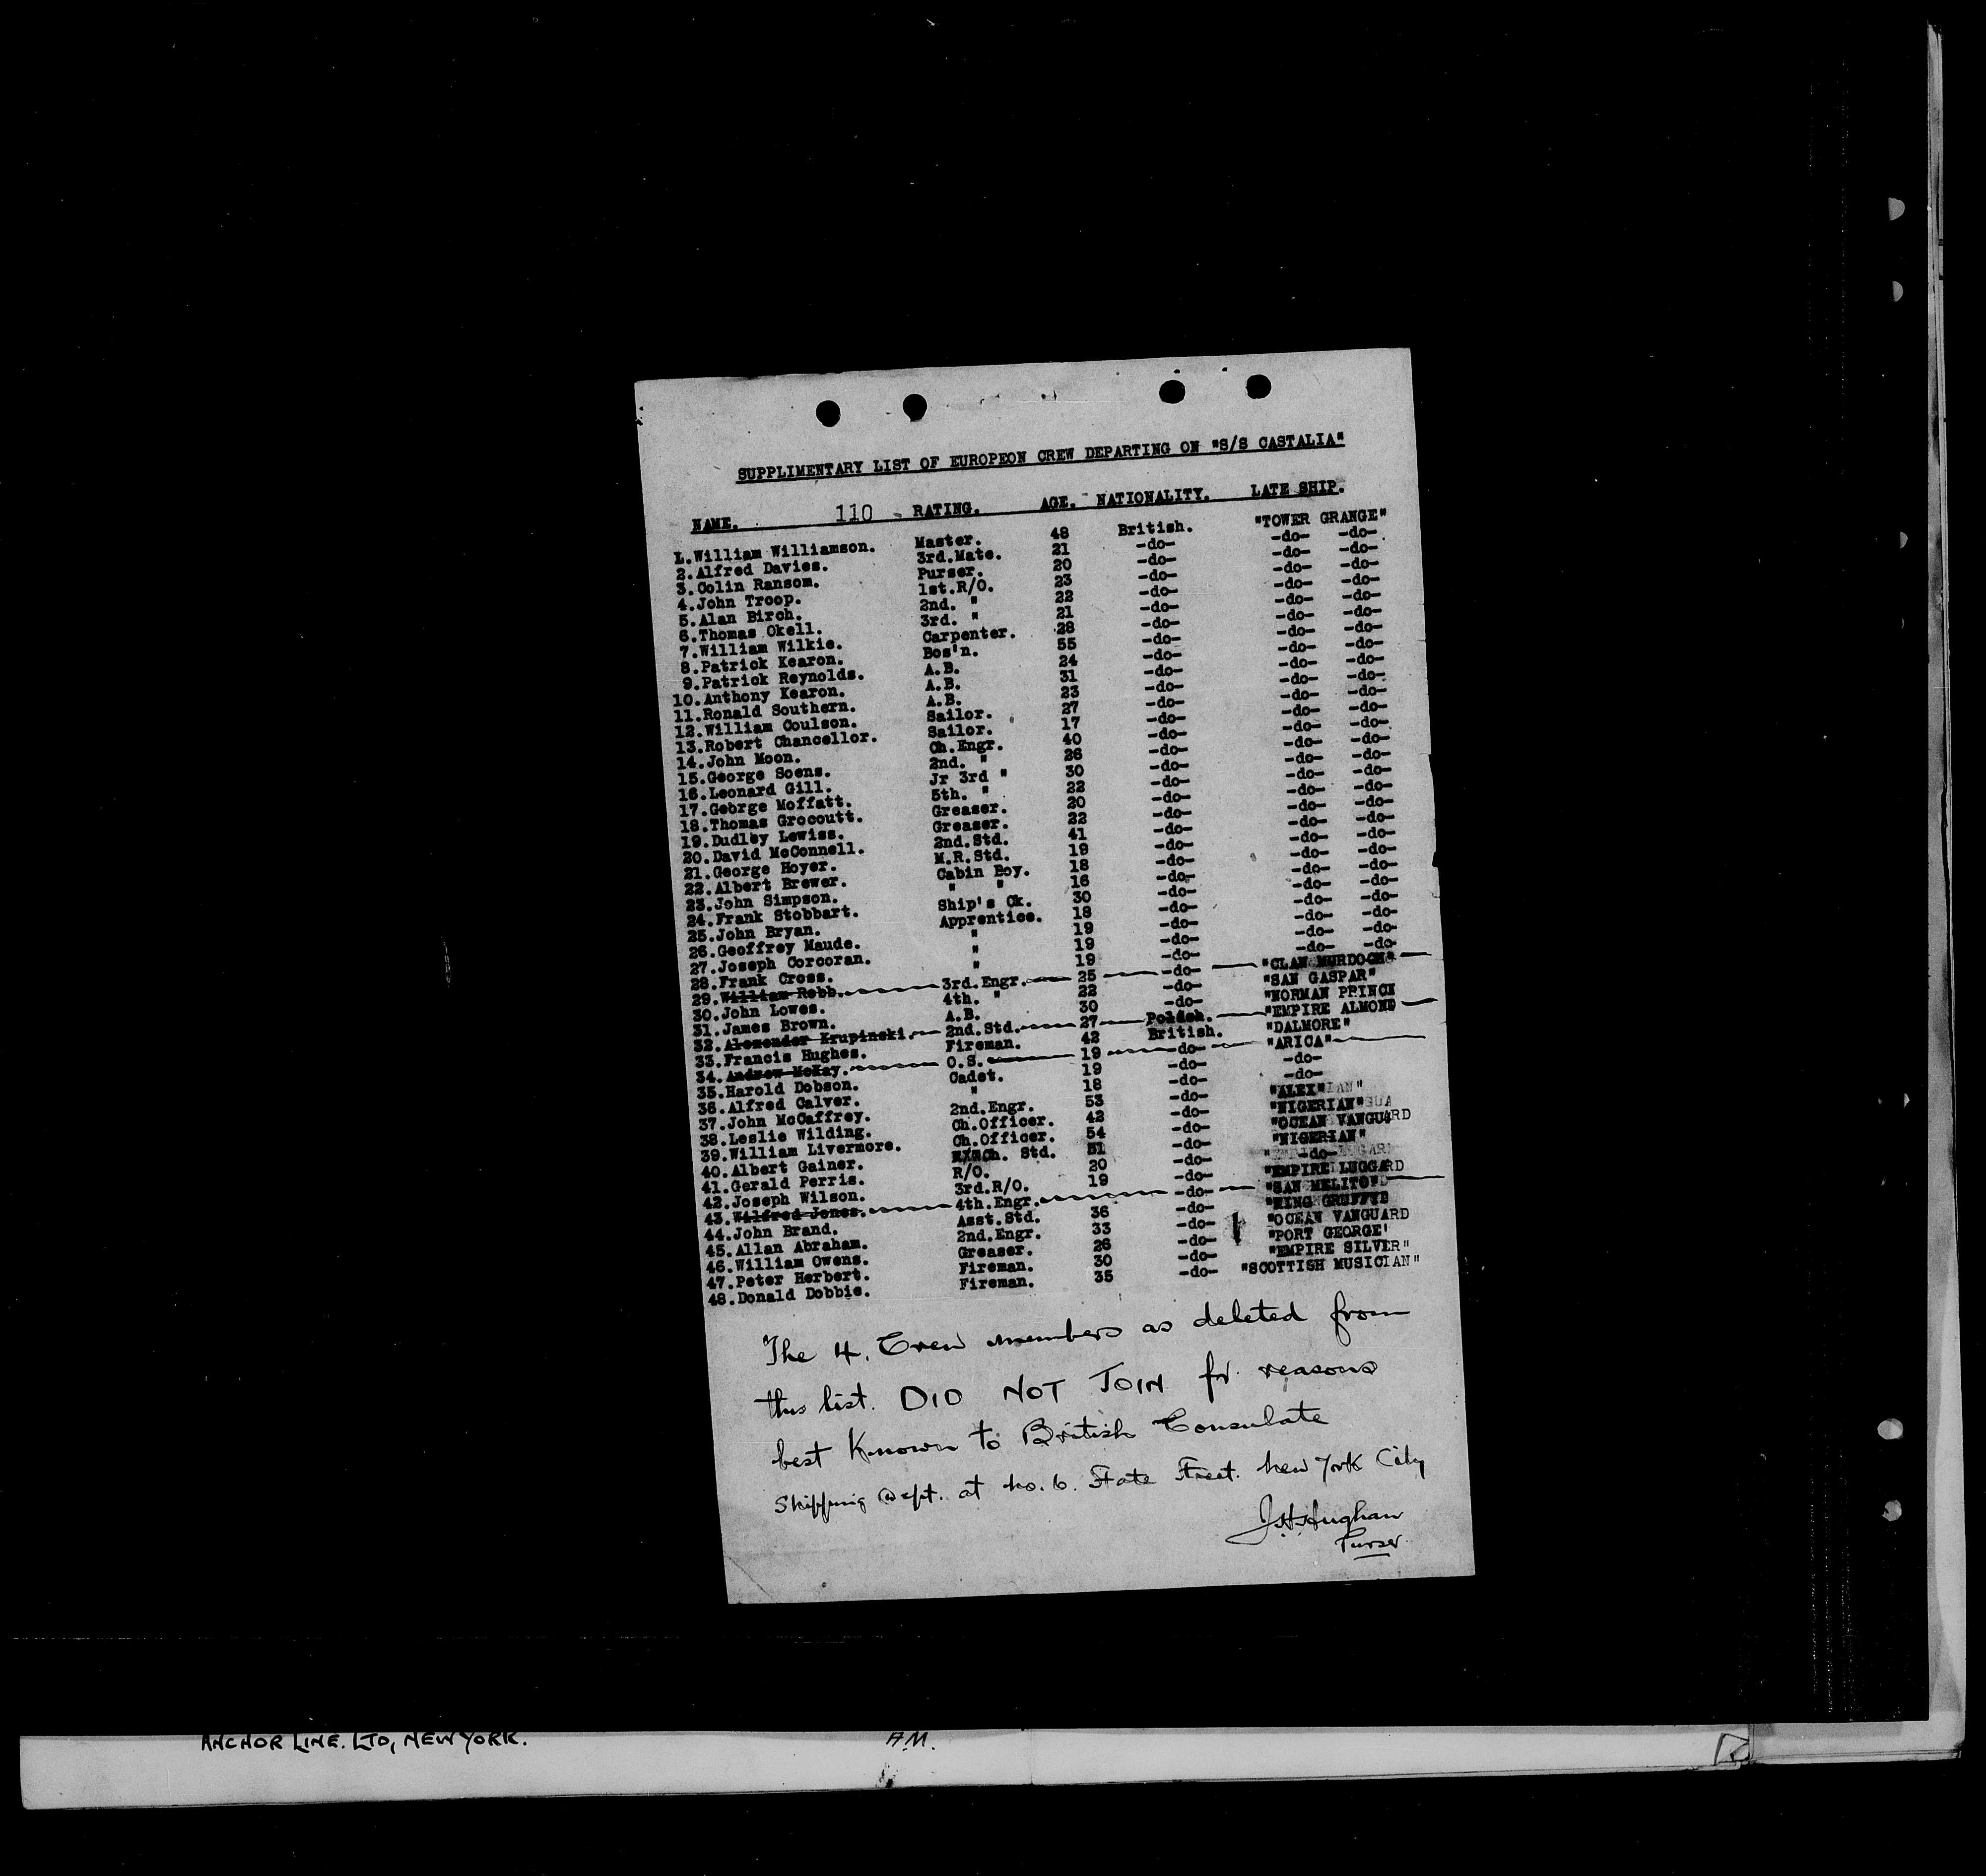 SUPPLIMENTARY LIST OF EUROPEON CREW DEPARTING ON "S/S CASTALIA"
NAME. 110 - RATING. AGE. NATIONALITY. LATE SHIP.
1.William Williamson. Master. 48 British. "TOWER GRANGE"
2.Alfred Davies. 3rd.Mate. 21 -do- -do- -do-
3.Colin Ransom. Purser. 20 -do- -do- -do-
4.John Troop. 1st.R/O. 23 -do- -do- -do-
5.Alan Birch. 2nd. " 22 -do- -do- -do-
6.Thomas Okell. 3rd. " 21 -do- -do- -do-
7.William Wilkie. Carpenter. 28 -do- -do- -do-
8.Patrick Kearon. Bos'n. 55 -do- -do- -do-
9.Patrick Reynolds. A.B. 24 -do- -do- -do-
10.Anthony Kearon. A.B. 31 -do- -do- -do-
11.Ronald Southern. A.B. 23 -do- -do- -do-
12.William Coulson. Sailor. 27 -do- -do- -do-
13.Robert Chancellor. Sailor. 17 -do- -do- -do-
14.John Moon. Ch.Engr. 40 -do- -do- -do-
15.George Soens. 2nd. " 26 -do- -do- -do-
16.Leonard Gill. Jr 3rd " 30 -do- -do- -do-
17.George Moffatt. 5th. " 22 -do- -do- -do-
18.Thomas Grocoutt. Greaser. 20 -do- -do- -do-
19.Dudley Lewiss. Greaser. 22 -do- -do- -do-
20.David McConnell. 2nd.Std. 41 -do- -do- -do-
21.George Hoyer. M.R.Std. 19 -do- -do- -do-
22.Albert Brewer. Cabin Boy. 18 -do- -do- -do-
23.John Simpson. " " 16 -do- -do- -do-
24.Frank Stobbart. Ship's Ck. 30 -do- -do- -do-
25.John Bryan. Apprentice. 18 -do- -do- -do-
26.Geoffrey Maude. " 19 -do- -do- -do-
27.Joseph Corcoran. " 19 -do- -do- -do-
28.Frank Cross. " 19 -do- -do- -do-
29.William Robb. 3rd.Engr. 25 -do- "CLAN MURDOCH"
30.John Lowes. 4th. " 22 -do- "SAN GASPAR"
31.James Brown. A.B. 30 -do- "NORMAN PRINCE
32.Alexander Krupinski. 2nd.Std. 27 Polish. "EMPIRE ALMOND
33.Francis Hughes. Fireman. 42 British. "DALMORE"
34.Andrew McKay. O.S. 19 -do- "ARICA"
35.Harold Dobson. Cadet. 19 -do- -do-
36.Alfred Calver. " 18 -do- -do-
37.John McCaffrey. 2nd.Engr. 53 -do- "ALEX"
38.Leslie Wilding. Ch.Officer. 42 -do- "NIGERIAN"
39.William Livermore. Ch.Officer. 54 -do- "OCEAN VANGUARD
40.Albert Gainer. Ch. Std. 51 -do- "NIGERIAN"
41.Gerald Perris. R/O. 20 -do- -do-
42.Joseph Wilson. 3rd.R/O. 19 -do- "EMPIRE LUGGARD
43.Wilfred Jones. 4th.Engr. -do- "SAN MELITO"
44.John Brand. Asst.Std. 36 -do- "KING GRUFFYD
45.Allan Abraham. 2nd.Engr. 33 -do- "OCEAN VANGUARD
46.William Owens. Greaser. 26 -do- "PORT GEORGE'
47.Peter Herbert. Fireman. 30 -do- "EMPIRE SILVER"
48.Donald Dobbie. Fireman. 35 -do- "SCOTTISH MUSICIAN"
The 4. Crew members as deleted from
this list. DID NOT JOIN for reasons
best Known to British Consulate
Shipping Dept. at No. 6. State Street. New York City
J.H. Hughan
Purser
ANCHOR LINE. LTD, NEW YORK. A.M.